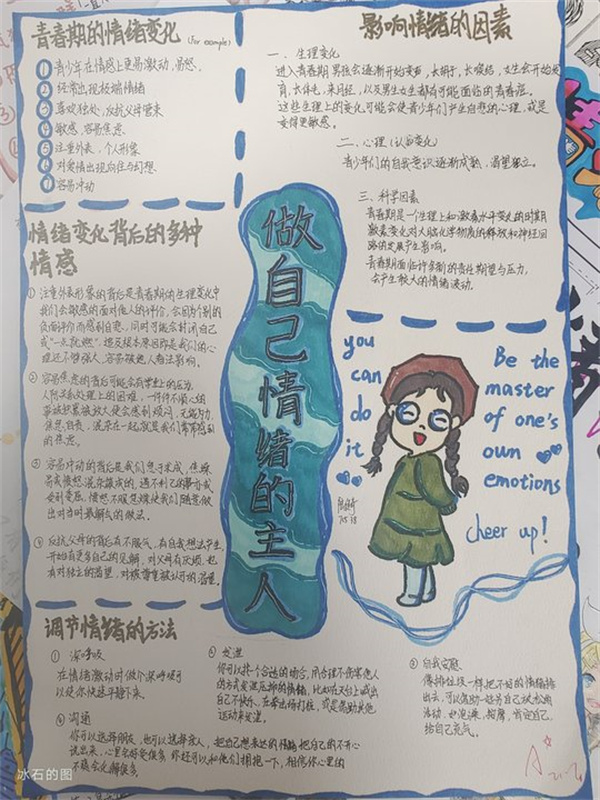 青春期的情绪变化 (For example)
① 青少年在情感上更易激动,易怒。
② 经常出现极端情绪
③ 喜欢独处,反抗父母管束
④ 敏感,容易焦虑
⑤ 注重外表,个人形象
⑥ 对爱情出现向往与幻想
⑦ 容易冲动
影响情绪的因素
一、生理变化
进入青春期 男孩会逐渐开始变声,长胡子,长喉结,女生会开始发
育,长体毛,来月经,以及男生女生都有可能面临的青春痘。
这些生理上的变化可能会使青少年们产生自卑的心理,或是
变得更敏感。
二、心理(认知变化)
青少年们的自我意识逐渐成熟,渴望独立。
三、科学因素
青春期是一个生理上和激素水平变化的时期
激素变化对大脑化学物质的释放和神经回
路的发展产生影响。
青春期面临许多新的责任期望与压力,
会产生较大的情绪波动。
情绪变化背后的多种
情感
① 注重外表形象的背后是青春期的生理变化中
我们会敏感的面对他人的评价,会因为个别的
负面评价而感到自卑,同时可能会封闭自己
或“一点就燃”,想及根本原因即是我们的心
理还不够强大,容易被他人看法影响。
② 容易焦虑的背后可能会有学业上的压力,
人际关系处理上的困难,一件件不顺心的
事被积累被放大使会感到烦闷,无能为力,
焦急,自责,混杂在一起就是我们常常感到
的焦虑。
③ 容易冲动的背后是我们急于求成,焦躁
易我愤怒混杂酿成的,遇不到己的事自我
受到委屈,愤怒不服怒燥使我们随意做
出对当时最解气的做法。
④ 反抗父母的背后有不服气,有自我想法产生,
开始有更多自己的见解,对父母有厌烦,也
有对独立的渴望,对被尊重被认可的渴望。
做自己情绪的主人
you
can
do
it
Be the
master
of one's
own
emotions
cheer up!
调节情绪的方法
① 深呼吸
在情绪激动时做个深呼吸可
以使你快速平静下来
② 发泄
你可以找个合适的场合,用合理不伤害他人
的方式发泄压抑的情绪,比如在天台上喊出
自己不快乐,在拳击场打桩,或是借助其他
运动来发泄。
③ 自我安慰
像排垃圾一样把不好的情绪排
出去,可以借助一些另自己放松的
活动,如泡澡,按摩,肯定自己,
给自己充气。
④ 沟通
你可以选择朋友,也可以选择亲人,把自己想表达的情绪把自己的不开心
说出来,心里会好受很多,你还可以和他们拥抱一下,相信你心里的
不痛会化解很多
冰石的图